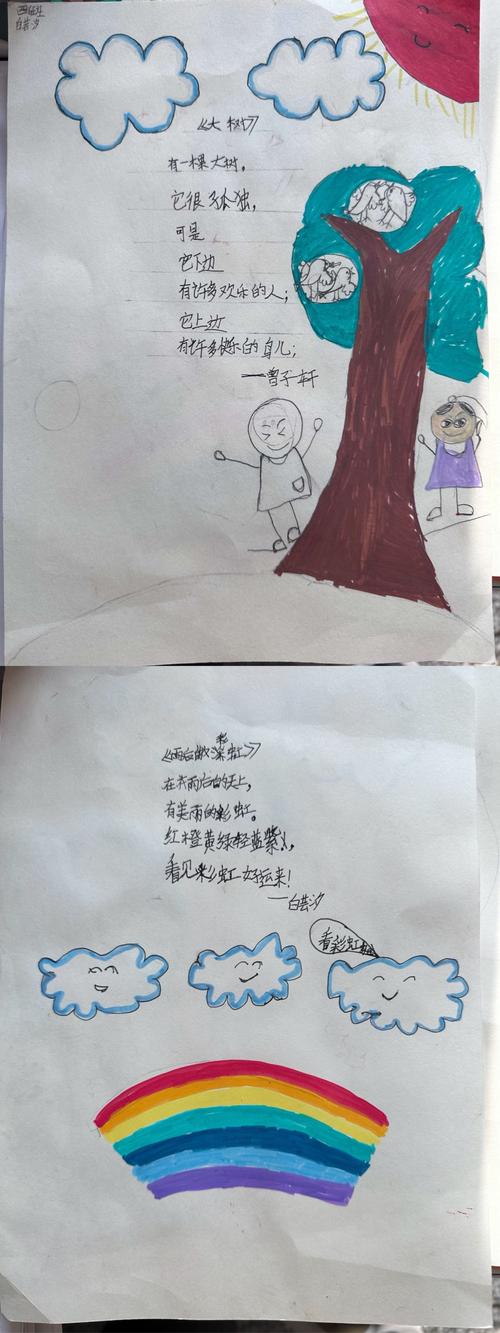 白芸汐
《大树》
有一棵大树。
它很孤独，
可是
它下边
有许多欢乐的人；
它上边
有许多快乐的鸟儿；
——曾子轩
《雨后的彩虹》
在大雨后的天上，
有美丽的彩虹。
红橙黄绿轻蓝紫，
看见彩虹好运来！
——白芸汐
看彩虹